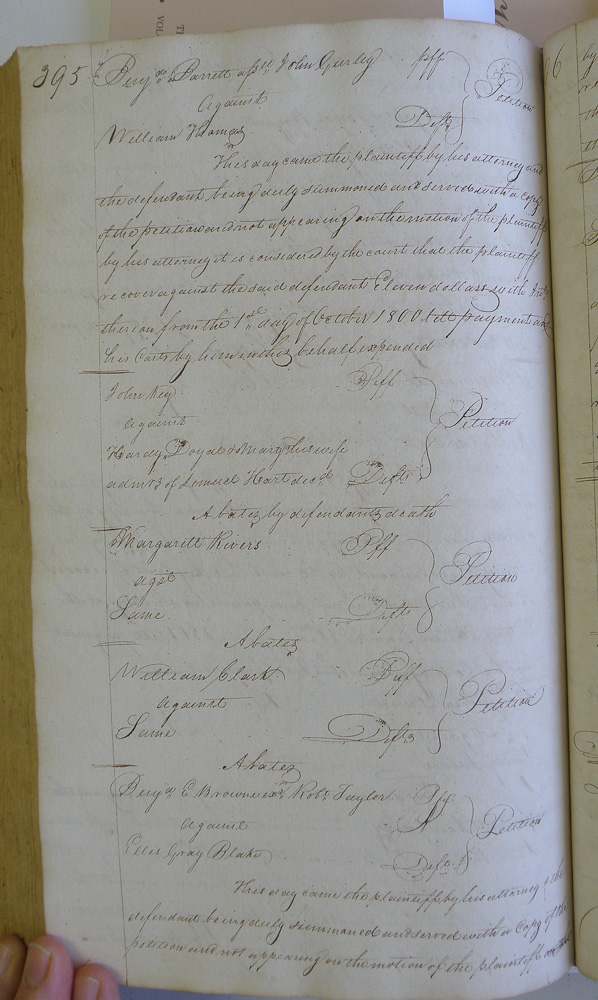 395
Benja Barrett assee John Gurley Plff
Against Petition
William Thomas Deft
This day came the plaintiff by his attorney and
the defendant being duly summoned and served with a copy
of the petition and not appearing on the motion of the plaintiff
by his attorney it is considered by the court that the plaintiff
recover against the said defendant Eleven dollars with Int
thereon from the 1st day of October 1800 till payment and
his Costs by him in this behalf expended
John Key Plff
against Petition
Hardy Doyal & Mary his wife
admrs of Lemuel Hart decd Defts
Abates by defendants death
Margarett Rivers Plff
agst Petition
Same Defts
Abates
William Clark Plff
against Petition
Same Defts
Abates
Benja E. Browne exr Robt Taylor Plff
against Petition
Ellis Gray Blake Deft
This day came the plaintiff by his attorney & the
defendant being duly summoned and served with a Copy of the
petition and not appearing on the motion of the plaintiff